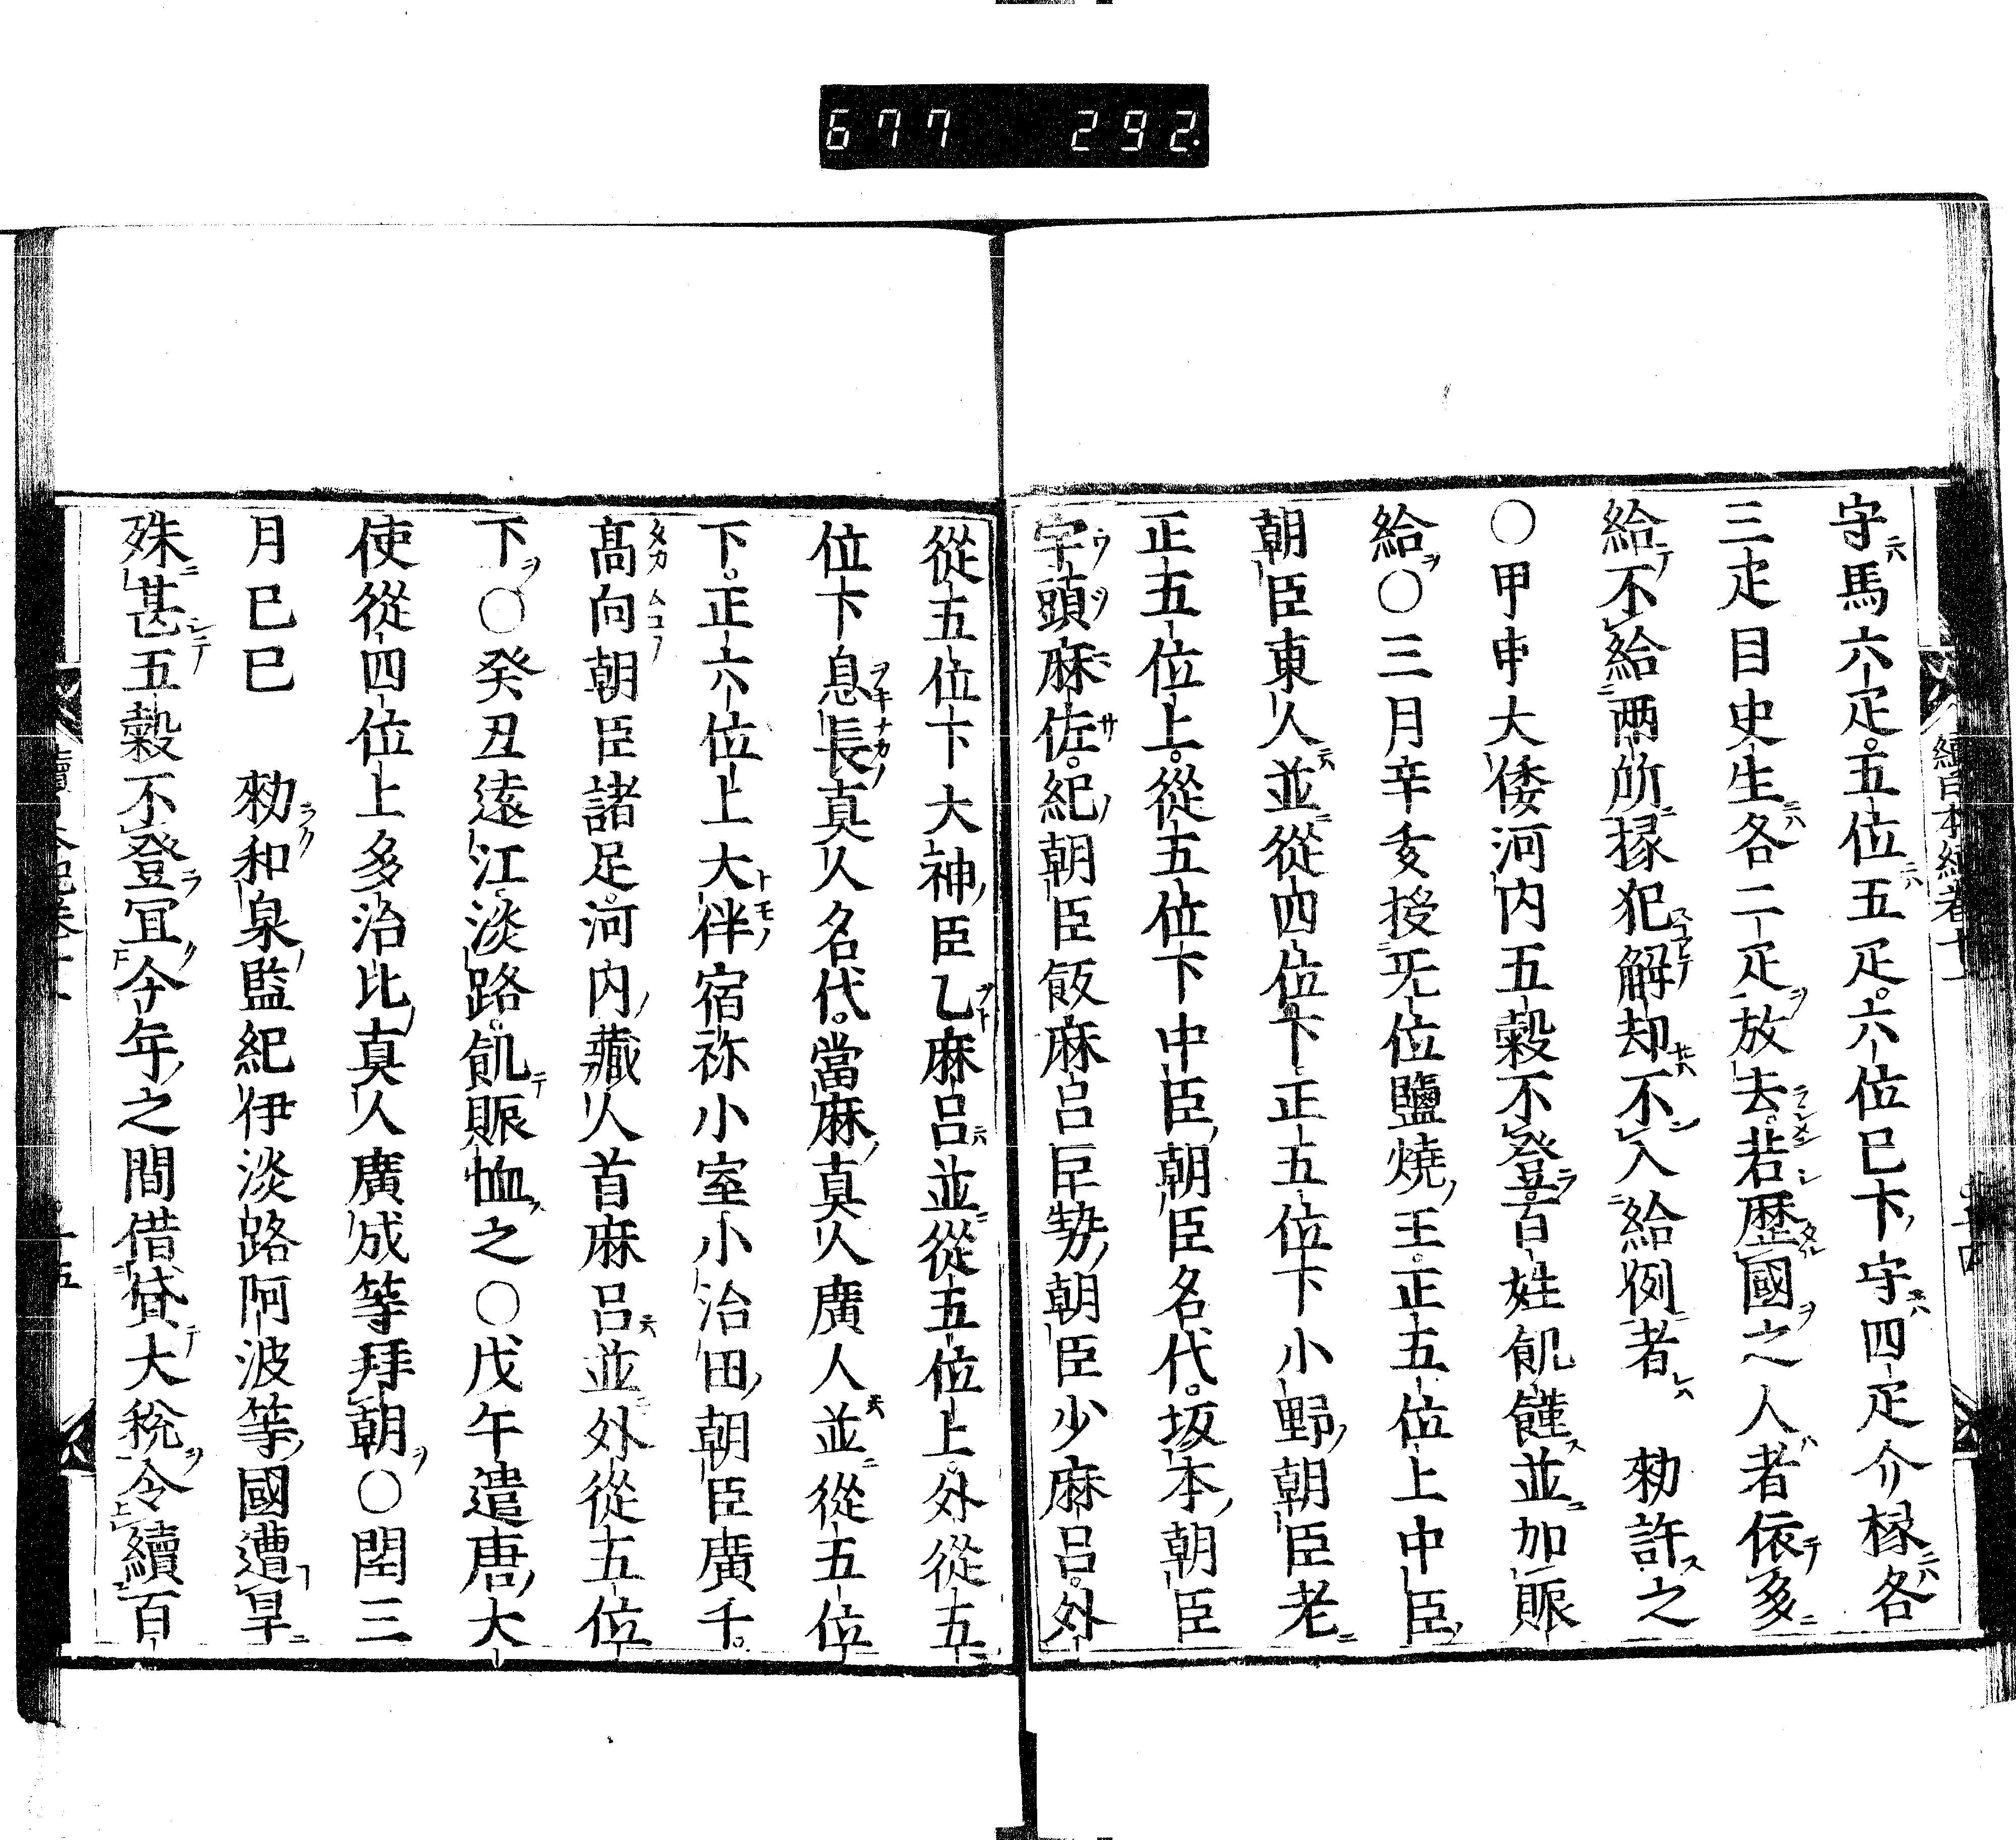 677 292.
守馬六疋。五位五疋。六位已下守四疋介椽各
三疋目史生各二疋放去。若歴國之人者依多
給不給兩所掾犯解却不入給例者 勑許之
〇甲申大倭河内五穀不登百姓飢饉並加賑
給〇三月辛亥授无位鹽燒王。正五位上中臣
朝臣東人並從四位下正五位下小野朝臣老
正五位上。從五位下中臣朝臣名代。坂本朝臣
宇頭麻佐。紀朝臣飯麻呂巨勢朝臣少麻呂。外
從五位下大神臣乙麻呂並從五位上。外從五
位下息長真人名代。當麻真人廣人並從五位
下。正六位上大伴宿祢小室小治田朝臣廣千。
髙向朝臣諸足。河内藏人首麻呂並外從五位
下〇癸丑遠江。淡路。飢賑恤之〇戊午遣唐大
使從四位上多治比真人廣成等拜朝〇閏三
月巳巳 勑和泉監紀伊淡路阿波等國遭旱
殊甚五穀不登冝今年之間借貸大稅令續百